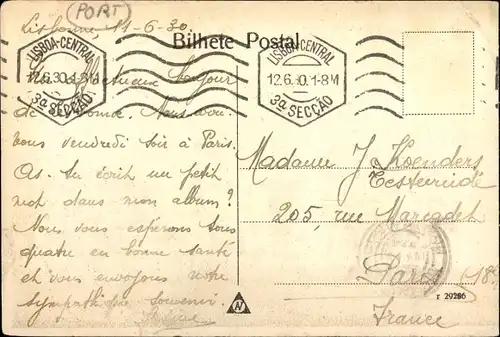 (PORT)
Lisbonne 11-6-30.
Bilhete Postal
LISBOA-CENTRAL
12.6.30.1-8M
3ª SECÇÃO
LISBOA-CENTRAL
12.6.30.1-8M
3ª SECÇÃO
bonjour
de Lisbonne. Nous
vous vendredi soir à Paris.
As-tu écrit un petit
mot dans mon album?
Nous vous espérons tous
quatre en bonne santé
et vous envoyons notre
sympathique souvenir.
Madame J Koenders
205, rue Marcadet
Paris (18e)
France
r 29286